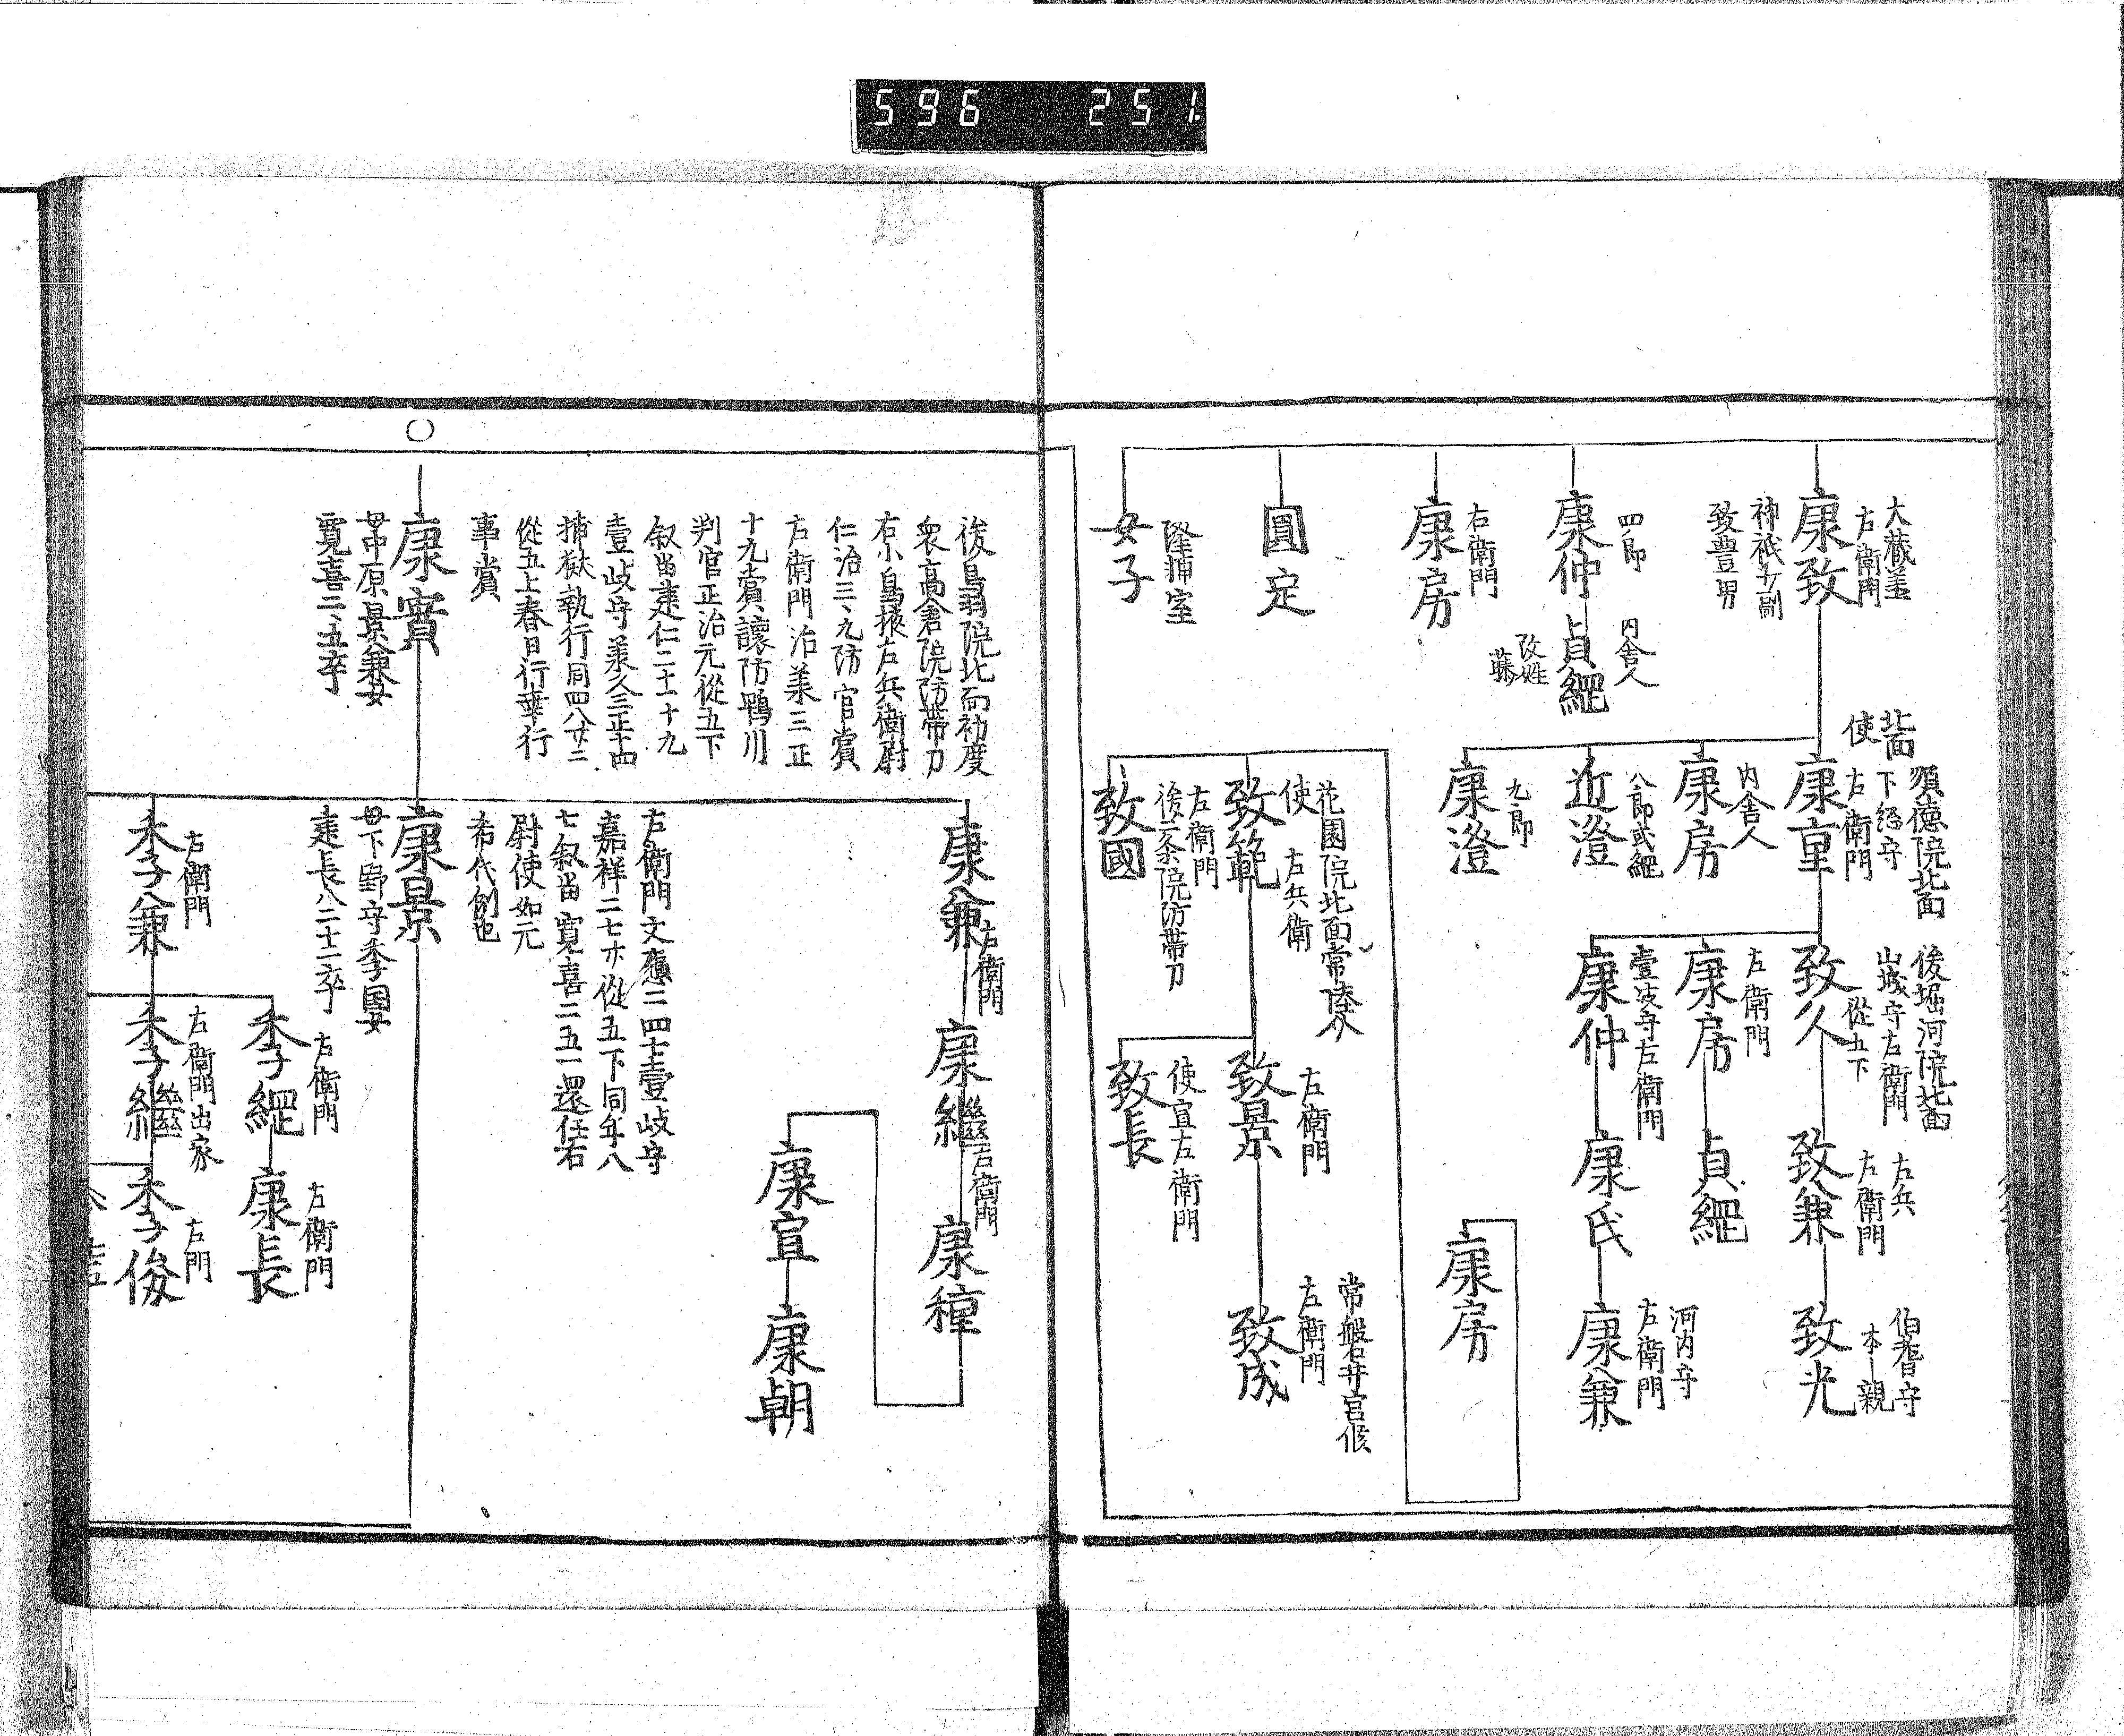 596 251
大蔵丞
左衛門
康致
神祇少副
致豊男
四郎
康仲
内舎人
貞綱
改姓
藤
右衛門
康房
圓定
隆捕室
女子
北面
使
順徳院北面
下総守
左衛門
康重
内舎人
康房
八郎貳綱
近澄
九郎
康澄
後堀河院北面
山城守右衛門
從五下
致久
左衛門
康房
壹岐守左衛門
康仲
右兵
左衛門
致兼
貞綱
康氏
伯耆守
本親
致光
河内守
左衛門
康兼
康房
花園院北面常陸介
使 左兵衛
致範
左衛門
後二条院防帯刀
致國
左衛門
致景
使宣左衛門
致長
常盤井宮候
左衛門
致成
○
後鳥羽院北面初度
衆高倉院防帯刀
右小鳥掖左兵衛尉
仁治三、九防官賞
左衛門治美三正
十九賞讓防鴨川
判官正治元從五下
叙留建仁二十十九
壹岐守美久三正十四
捕獄執行同四八廿二
從五上春日行幸行
事賞
康實
母中原景兼女
寛喜二、五卒
康兼
左衛門
康繼
右衛門
康種
康宣
康朝
右衛門文應二四七壹岐守
嘉祥二七六從五下同年八
七叙留寛喜二五一還任右
尉使如元
希代例也
康景
母下野守季国女
建長八二十一卒
左衛門
季兼
左衛門
季綱
左衛門
康長
右衛門出家
季繼
左門
季俊